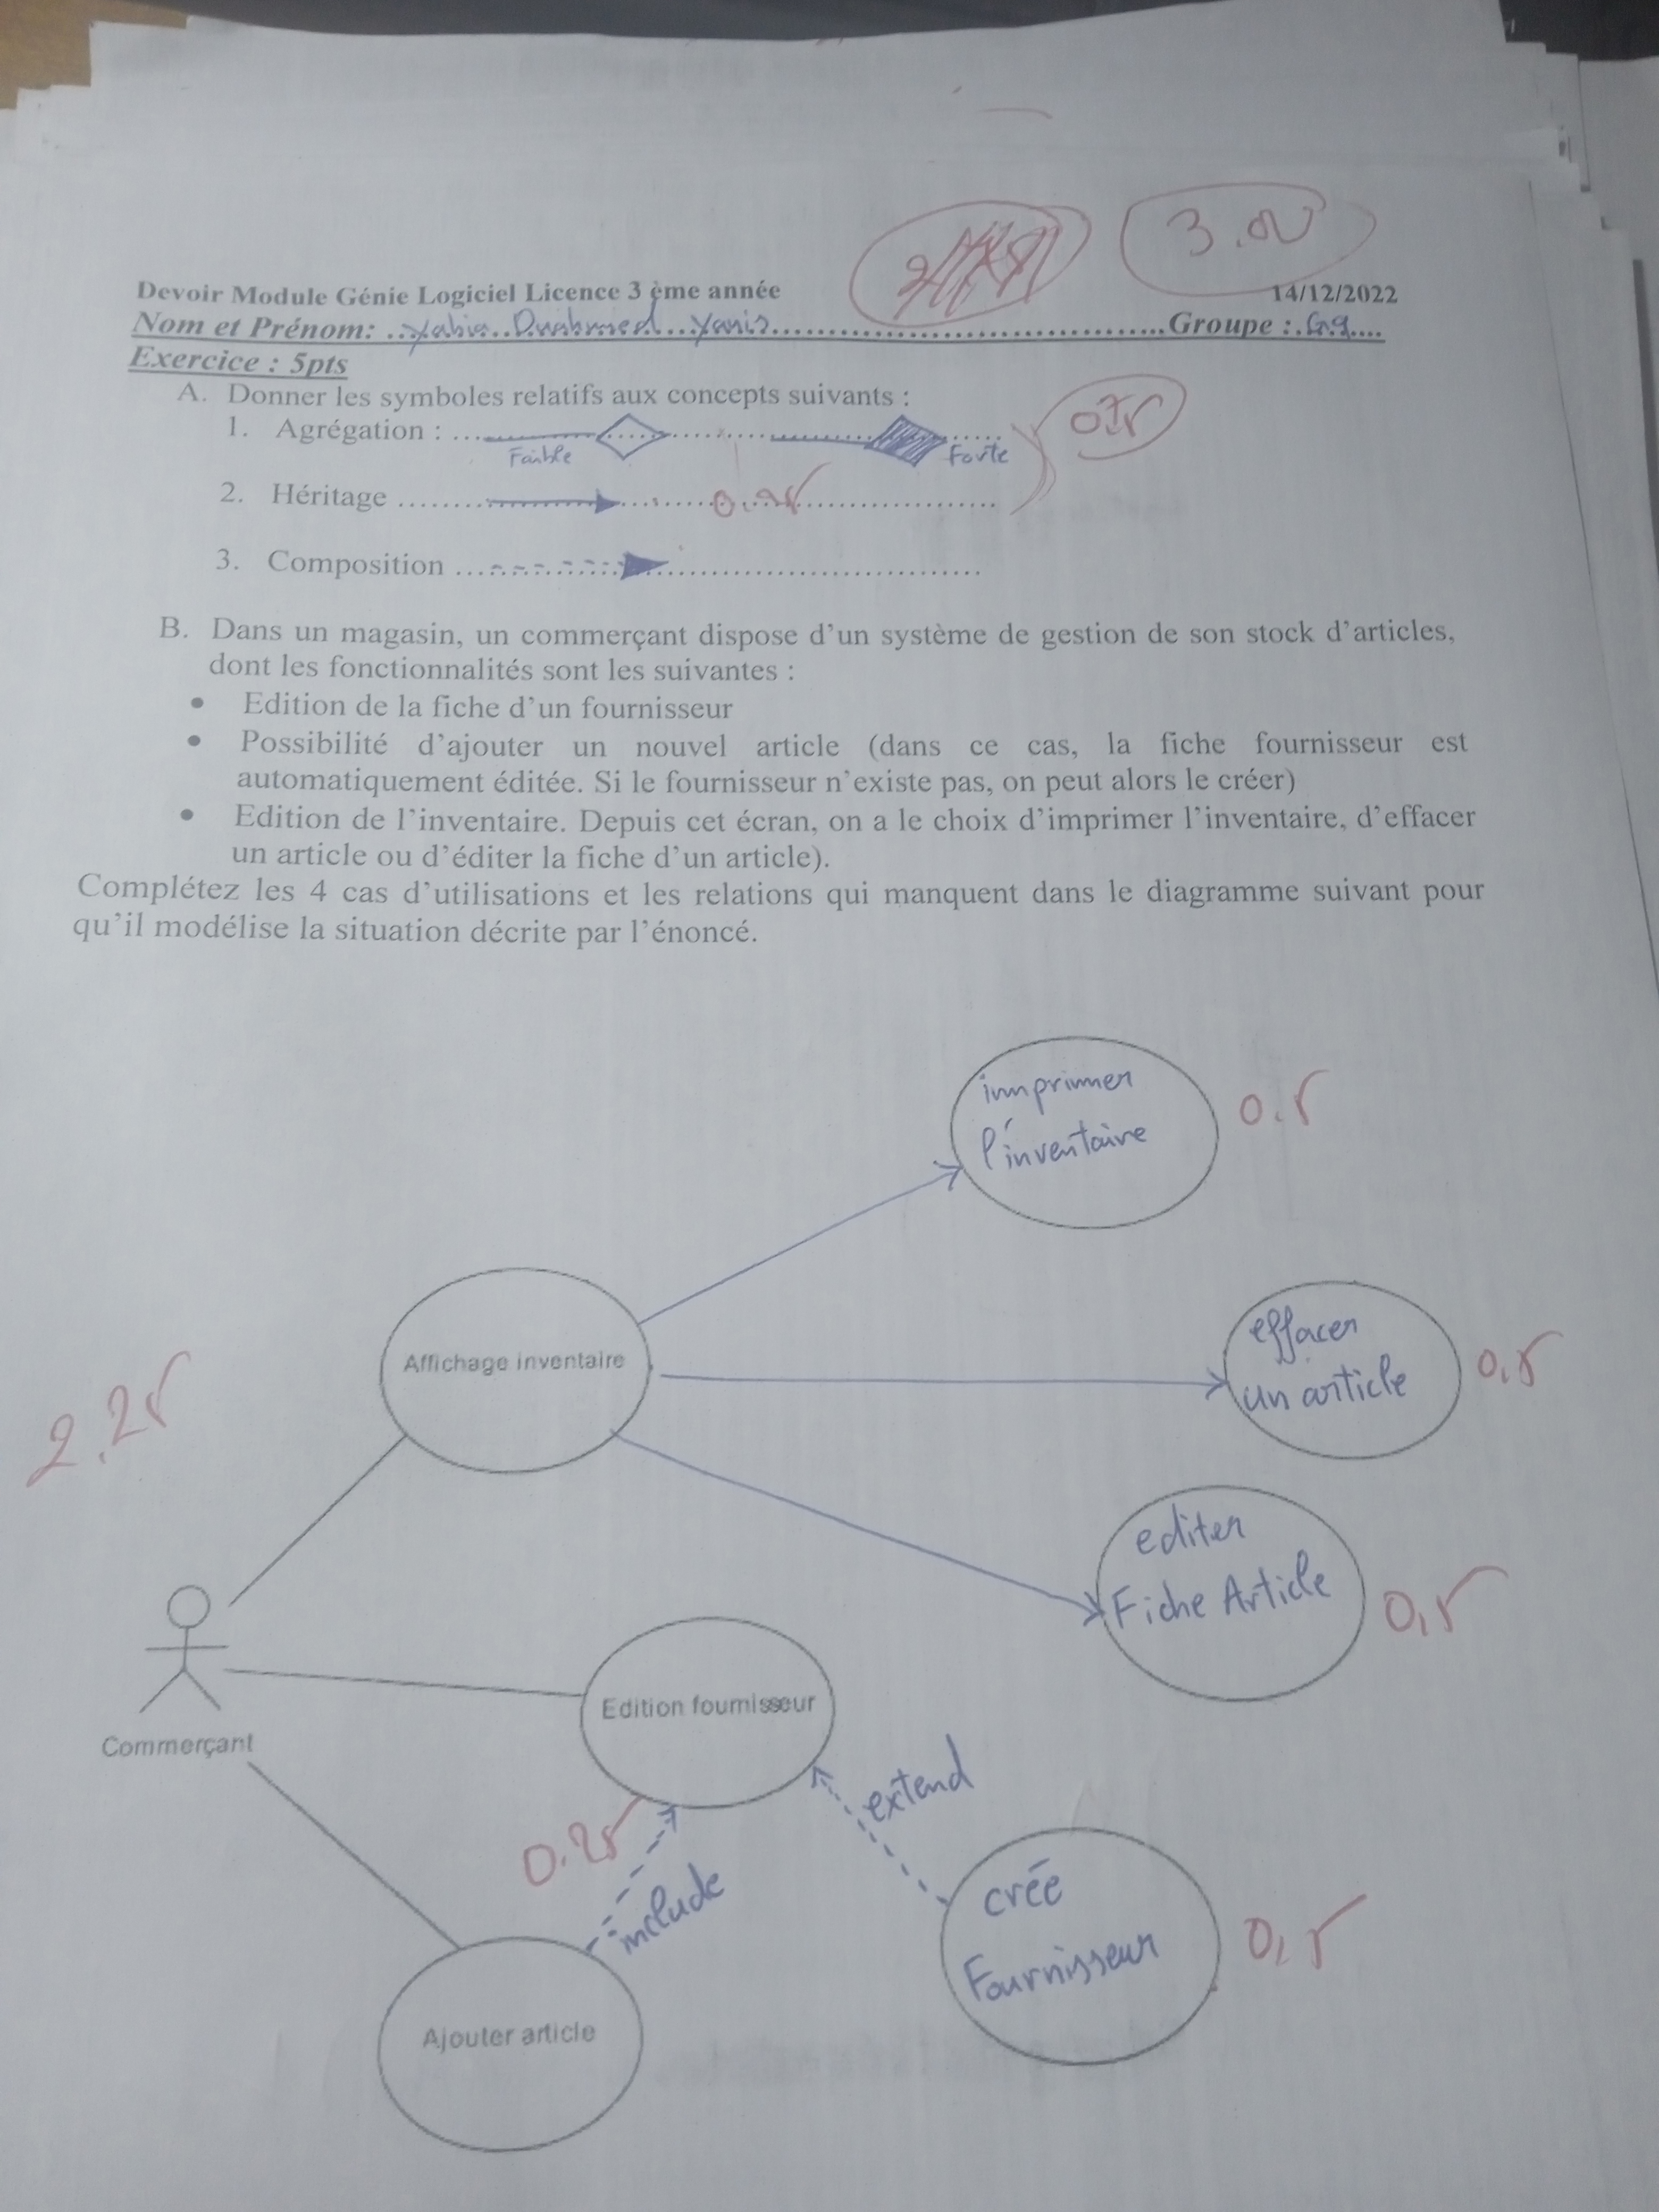 3.00
Devoir Module Génie Logiciel Licence 3 ème année 14/12/2022
Nom et Prénom: Yanis Groupe : G9
Exercice : 5pts
A. Donner les symboles relatifs aux concepts suivants :
1. Agrégation :
Faible Forte
2. Héritage 0.25
3. Composition
B. Dans un magasin, un commerçant dispose d'un système de gestion de son stock d'articles,
dont les fonctionnalités sont les suivantes :
• Edition de la fiche d'un fournisseur
• Possibilité d'ajouter un nouvel article (dans ce cas, la fiche fournisseur est
automatiquement éditée. Si le fournisseur n'existe pas, on peut alors le créer)
• Edition de l'inventaire. Depuis cet écran, on a le choix d'imprimer l'inventaire, d'effacer
un article ou d'éditer la fiche d'un article).
Complétez les 4 cas d'utilisations et les relations qui manquent dans le diagramme suivant pour
qu'il modélise la situation décrite par l'énoncé.
imprimer
l'inventaire
0.5
effacer
un article
0,5
Affichage inventaire
2.25
editer
Fiche Article
0,5
Edition fournisseur
Commerçant
extend
0.25
include
crée
Fournisseur
0,5
Ajouter article